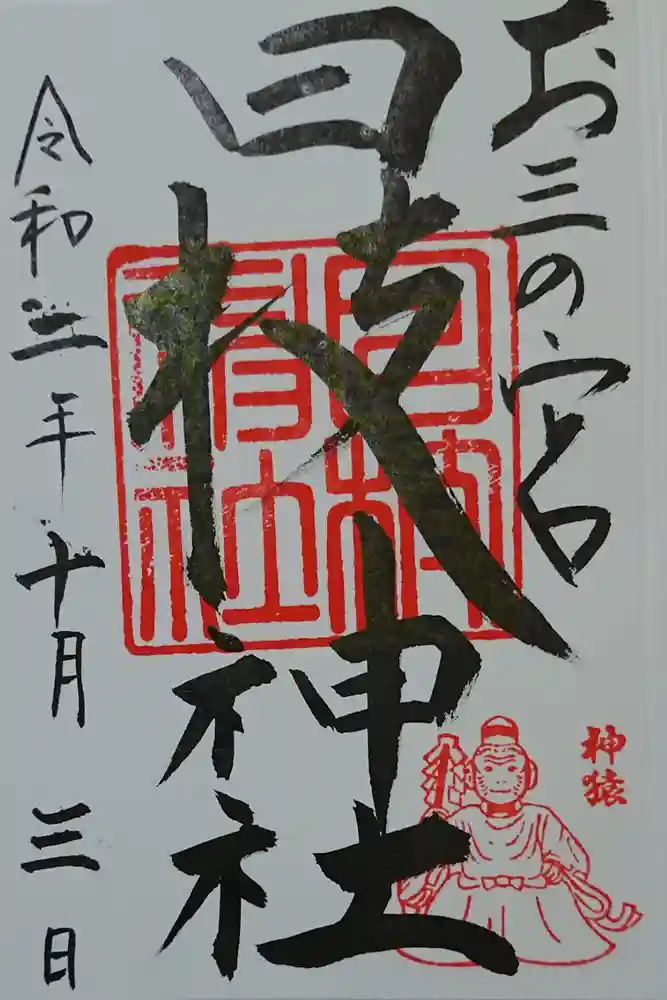 お三の宮
日枝神社
日枝
神社
神猿
令和三年十月三日